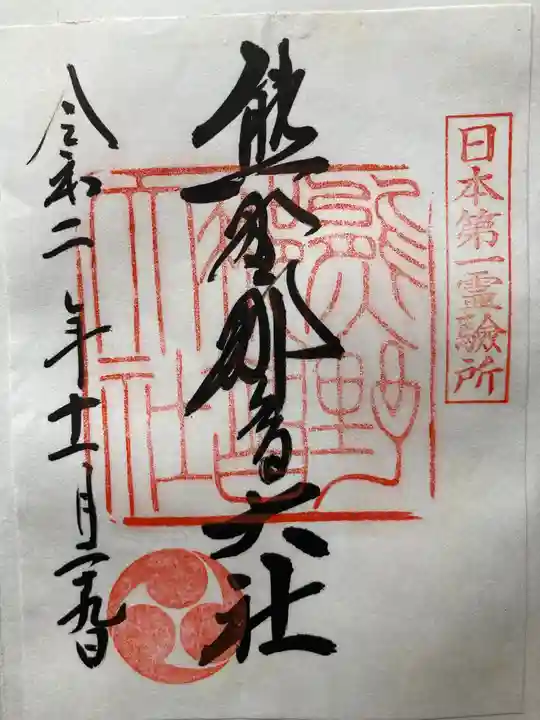 日本第一霊驗所
熊野那智大社
令和二年十一月二十九日